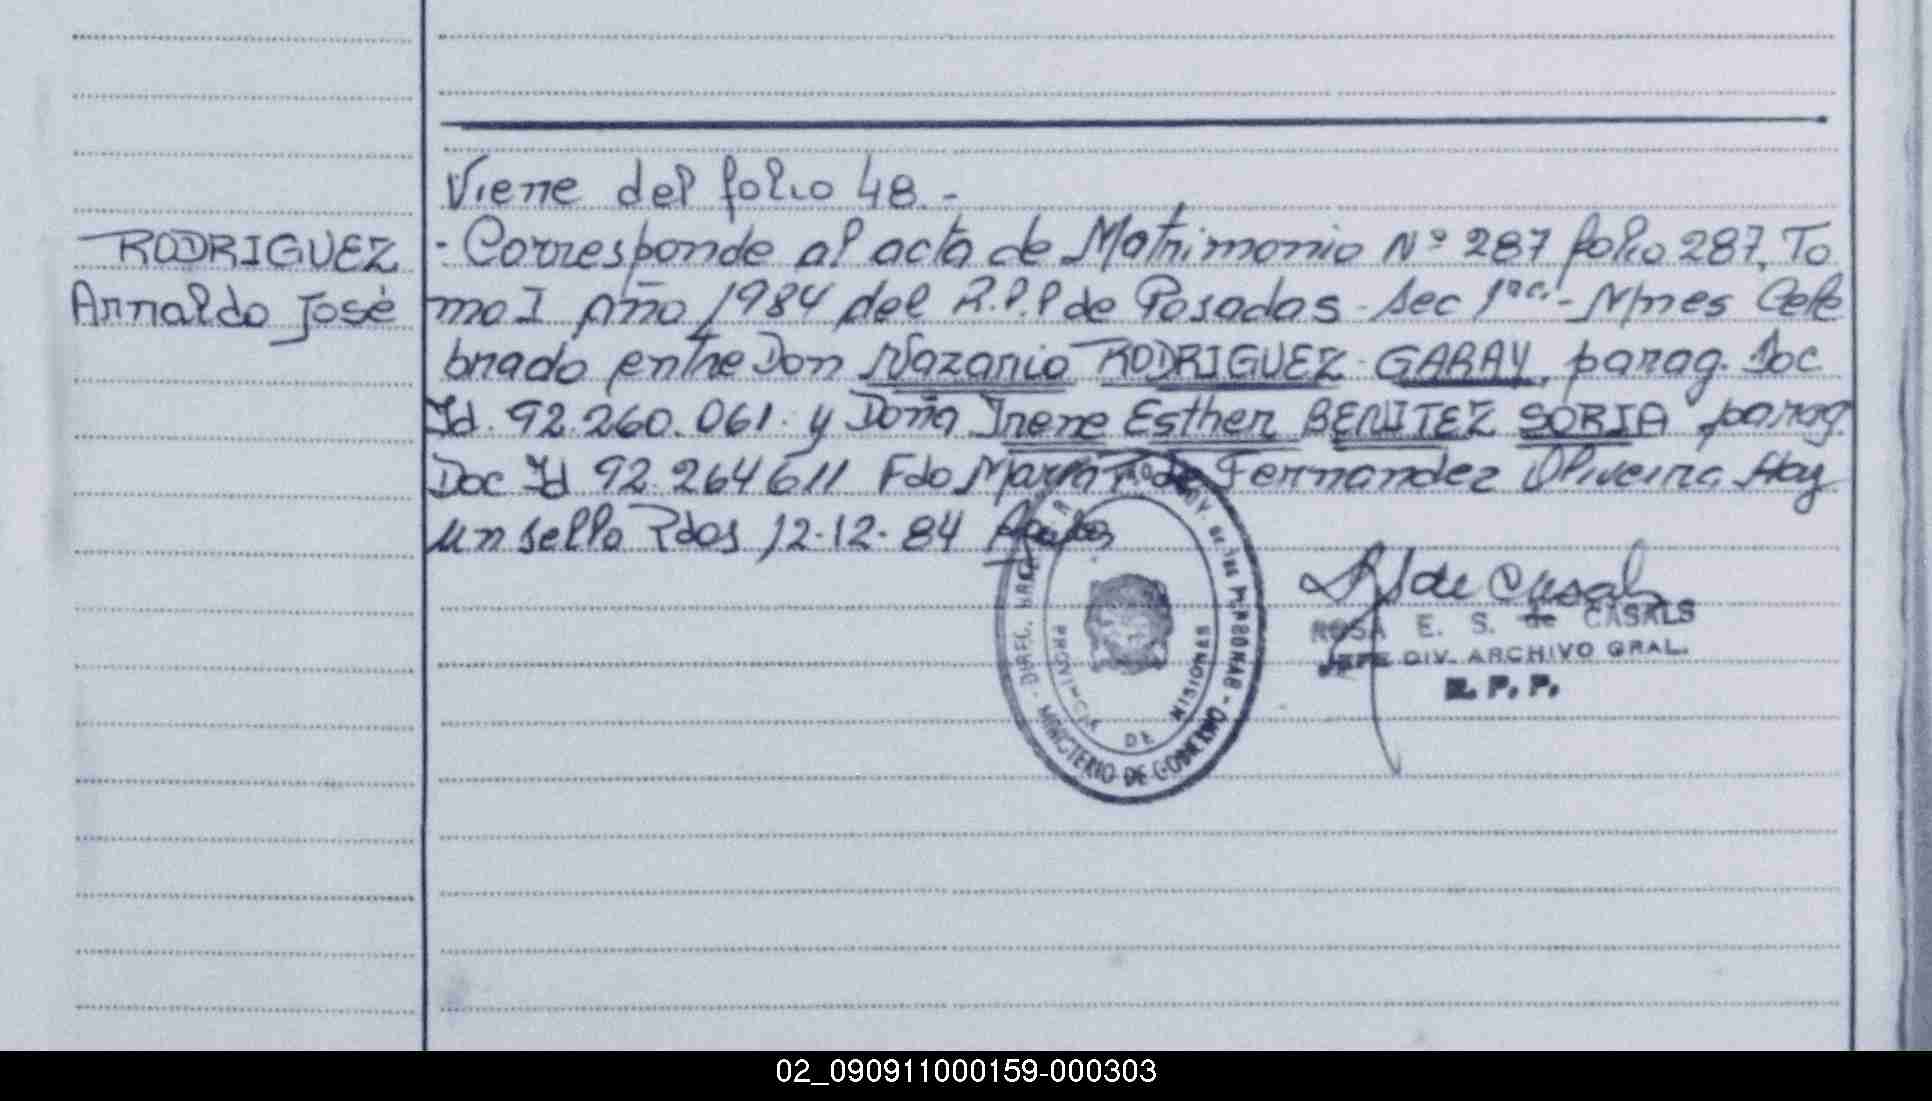 Viene del folio 48.-
RODRIGUEZ
Arnaldo José
- Corresponde al acta de Matrimonio Nº 287 folio 287, To
mo I Año 1984 del R.P.P de Posadas - Sec 1ra.- Mnes Cele
brado entre Don Nazario RODRIGUEZ GARAY, parag. Doc
Id. 92.260.061. y Doña Irene Esther BENITEZ SORIA parag
Doc Id 92.264611 Fdo María T. de Fernandez Oliveira Hay
un sello Pdas 12-12-84
ROSA E. S. de CASALS
JEFE DIV. ARCHIVO GRAL.
R. P. P.
PROVINCIA DE MISIONES
MINISTERIO DE GOBIERNO
02_090911000159-000303